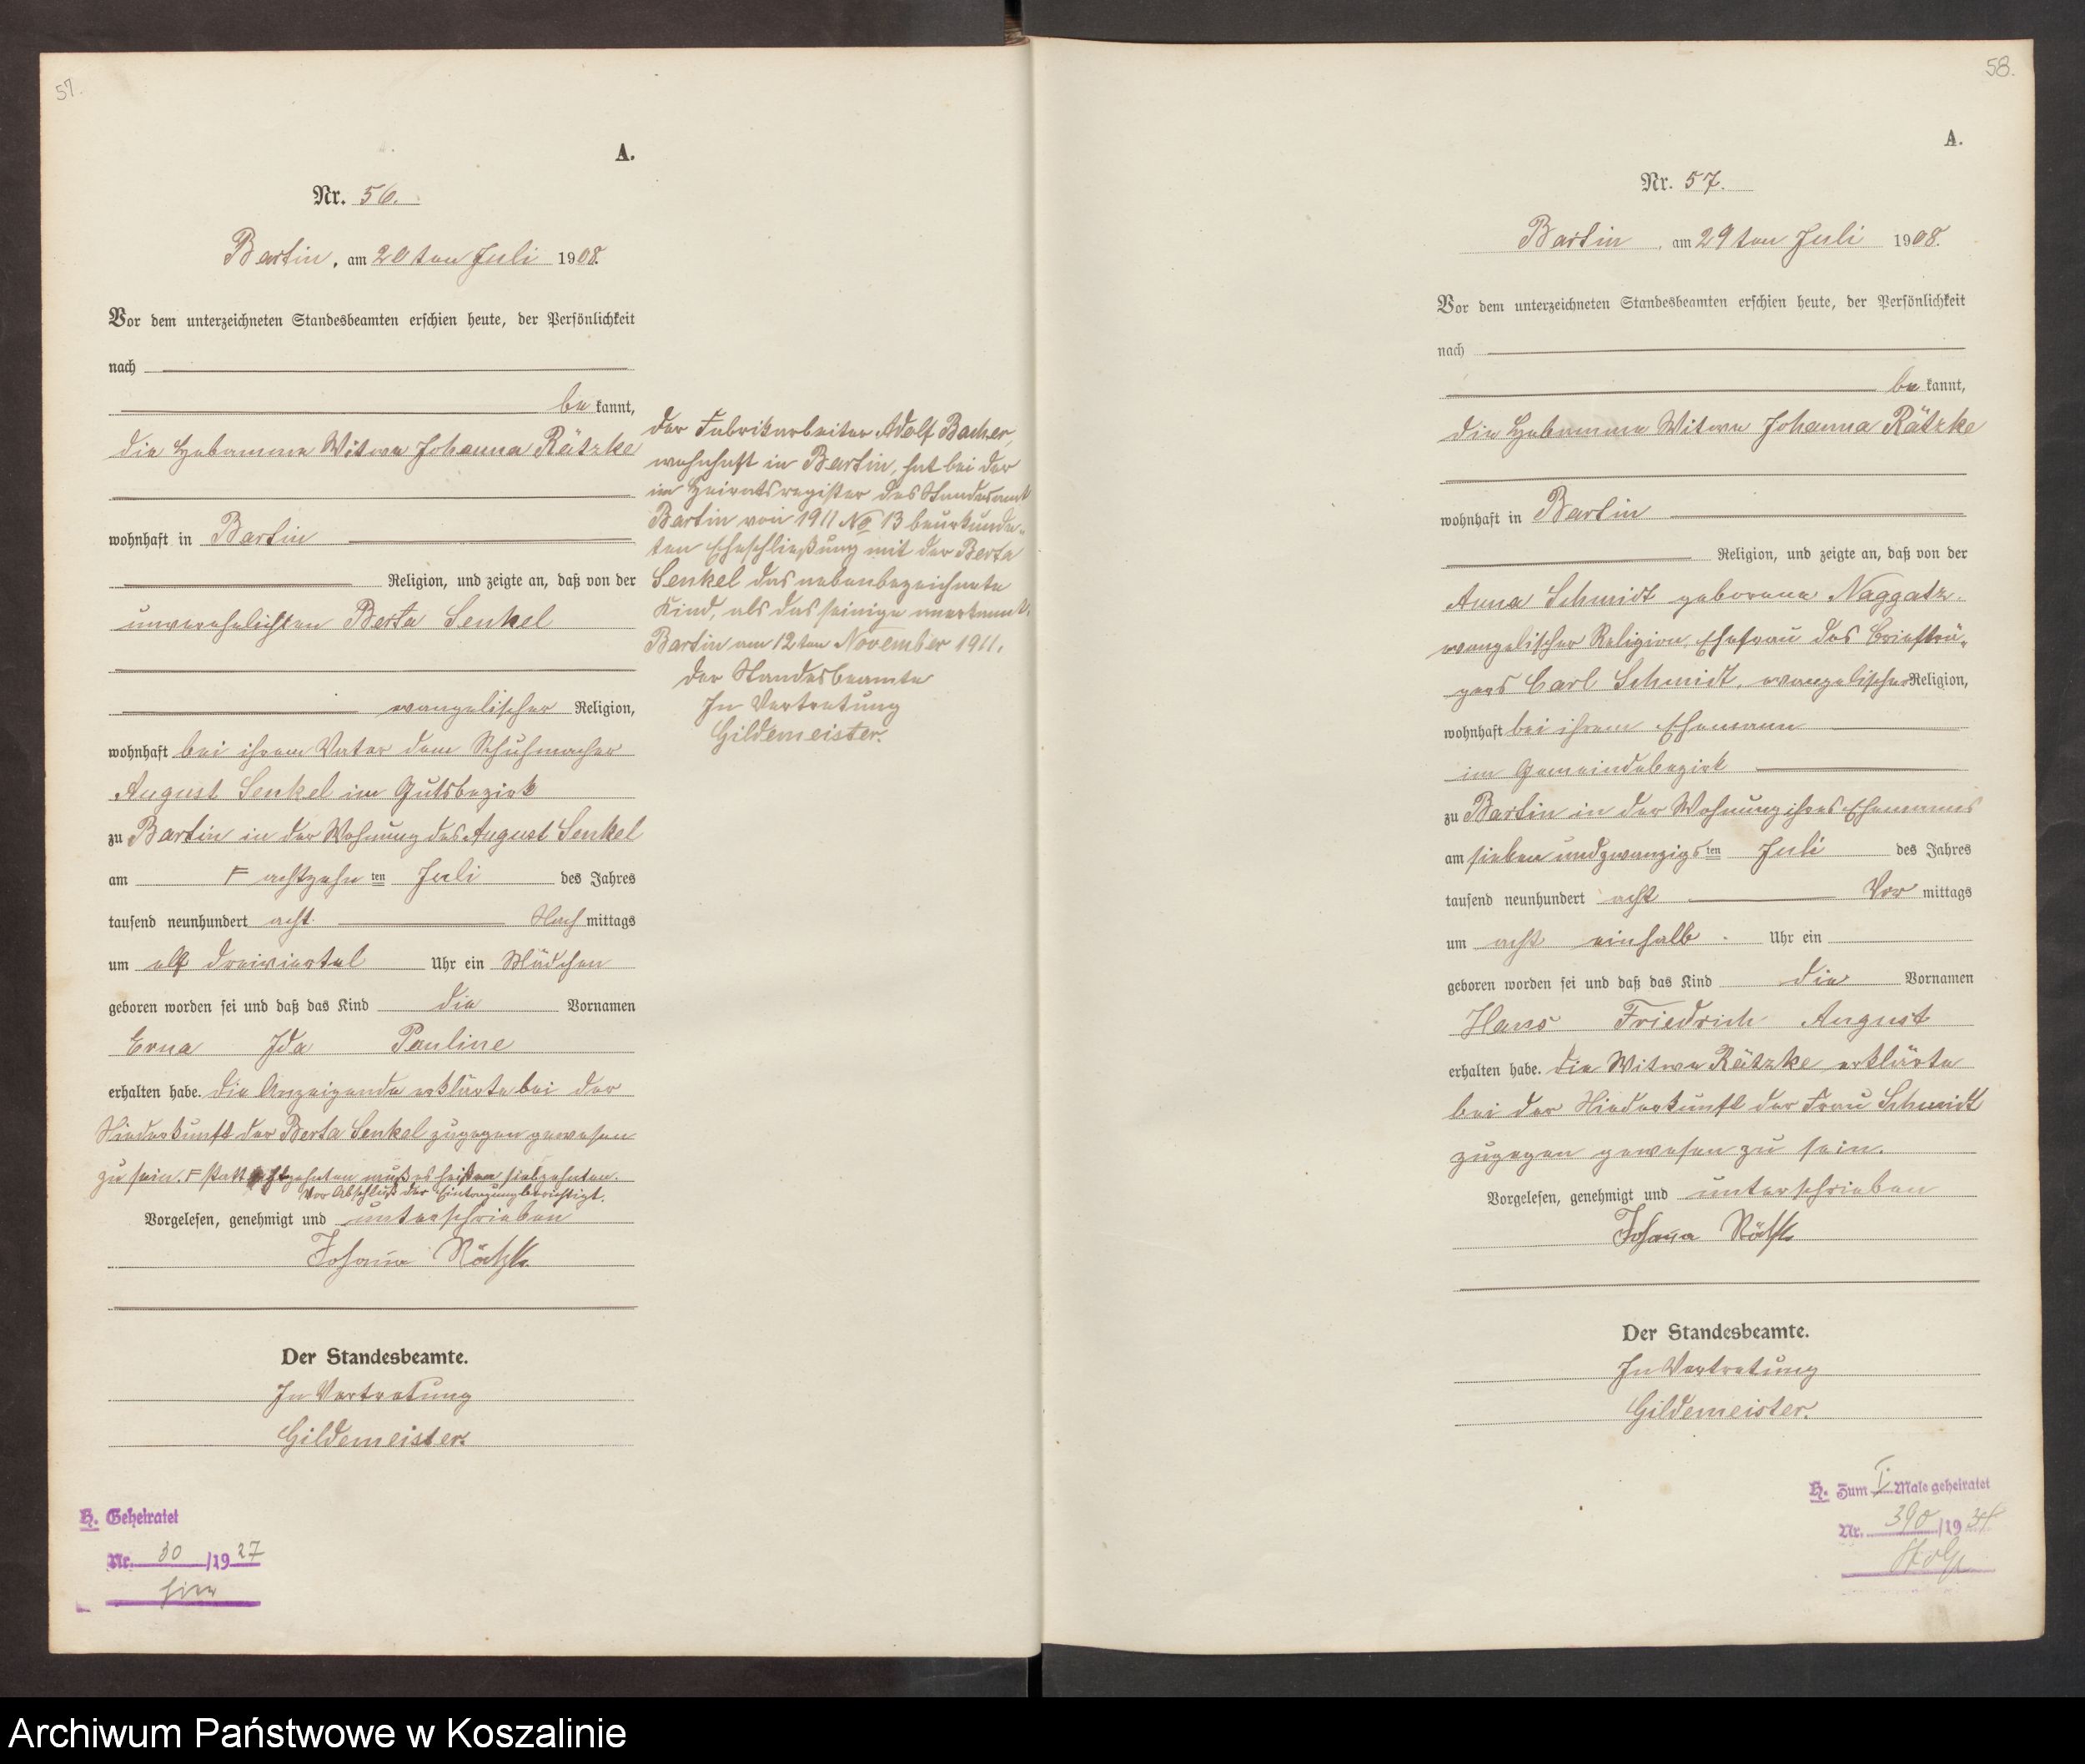 57.
A.
Nr. 56.
Bartin, am 20ten Juli 1908.
Vor dem unterzeichneten Standesbeamten erschien heute, der Persönlichkeit
nach
be kannt,
die Hebamme Witwe Johanna Rätzke
wohnhaft in Bartin
Religion, und zeigte an, daß von der
unverehelichten Berta Senkel
evangelischer Religion,
wohnhaft bei ihrem Vater dem Schuhmacher
August Senkel im Gutsbezirk
zu Bartin in der Wohnung des August Senkel
am F achtzehn ten Juli des Jahres
tausend neunhundert acht Nach mittags
um elf dreiviertel Uhr ein Mädchen
geboren worden sei und daß das Kind die Vornamen
Erna Ida Pauline
erhalten habe. Die Anzeigende erklärte bei der
Niederkunft der Berta Senkel zugegen gewesen
zu sein. F statt achtzehnten muß es heißen siebzehnten.
Vor Abschluß der Eintragung berichtigt.
Vorgelesen, genehmigt und unterschrieben
Johanna Rätzke
Der Standesbeamte.
In Vertretung
Gildemeister.
H. Geheiratet
Nr. 30 /1927
Der Fabrikarbeiter Adolf Bacher,
wohnhaft in Bartin, hat bei der
im Heiratsregister des Standesamt
Bartin von 1911 No 13 beurkunde-
ten Eheschließung mit der Berta
Senkel das nebenbezeichnete
Kind, als das seinige anerkannt.
Bartin am 12ten November 1911.
Der Standesbeamte
In Vertretung
Gildemeister.
58.
A.
Nr. 57.
Bartin, am 29ten Juli 1908.
Vor dem unterzeichneten Standesbeamten erschien heute, der Persönlichkeit
nach
be kannt,
die Hebamme Witwe Johanna Rätzke
wohnhaft in Bartin
Religion, und zeigte an, daß von der
Anna Schmidt geborene Naggatz,
evangelischer Religion, Ehefrau des Briefträ-
gers Carl Schmidt, evangelischer Religion,
wohnhaft bei ihrem Ehemann
im Gemeindebezirk
zu Bartin in der Wohnung ihres Ehemanns
am siebenundzwanzigs ten Juli des Jahres
tausend neunhundert acht Vor mittags
um acht einhalb Uhr ein
geboren worden sei und daß das Kind die Vornamen
Hans Friedrich August
erhalten habe. Die Witwe Rätzke erklärte
bei der Niederkunft der Frau Schmidt
zugegen gewesen zu sein.
Vorgelesen, genehmigt und unterschrieben
Johanna Rätzke
Der Standesbeamte.
In Vertretung
Gildemeister.
H. Zum I. Male geheiratet
Nr. 390 /19
Archiwum Państwowe w Koszalinie